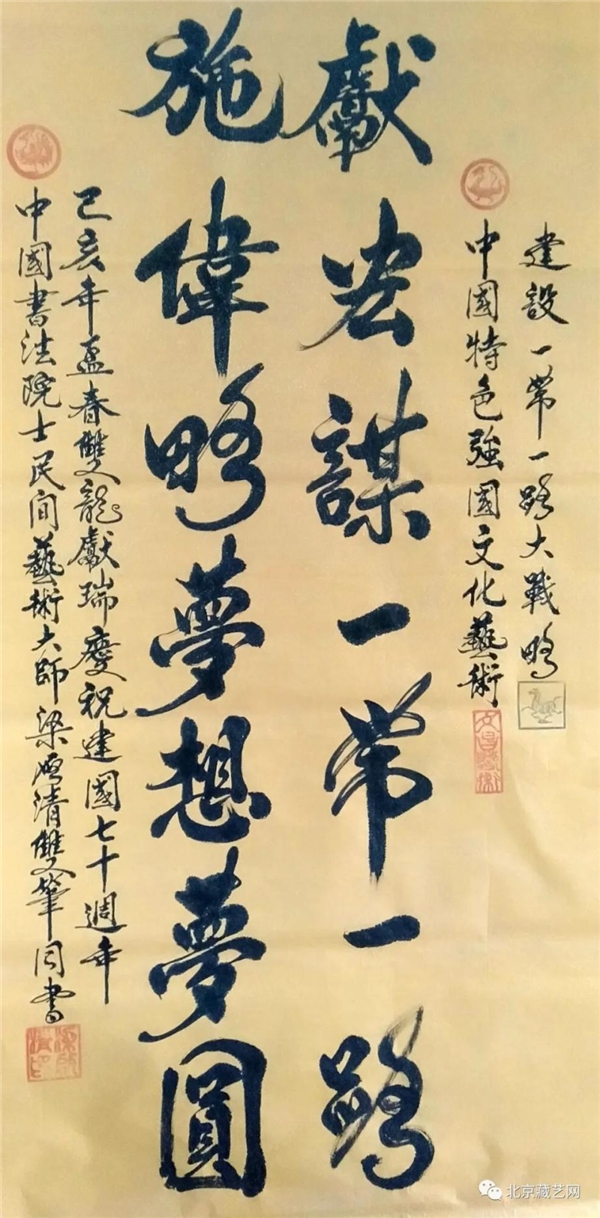 建設一帶一路大戰略
中國特色強國文化藝術
獻宏謀一帶一路
施偉略夢想夢圓
己亥年孟春雙龍獻瑞慶祝建國七十週年
中國書法院士民间藝術大師梁順清雙筆同書
北京藏艺网